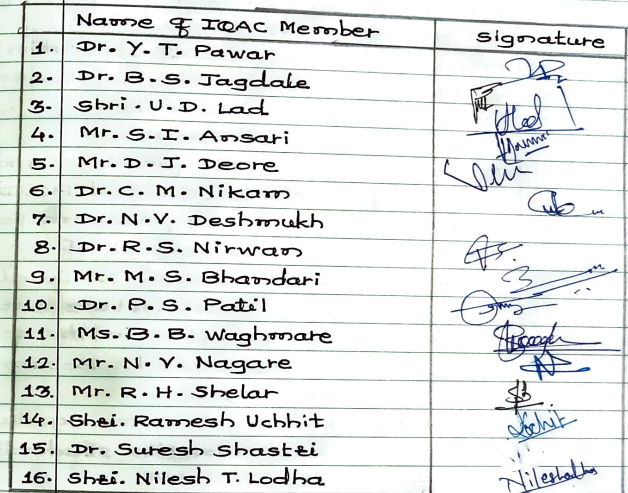 Name of IQAC Member Signature
1. Dr. Y. T. Pawar
2. Dr. B. S. Jagdale
3. Shri. U. D. Lad
4. Mr. S. I. Ansari
5. Mr. D. J. Deore
6. Dr. C. M. Nikam
7. Dr. N. V. Deshmukh
8. Dr. R. S. Nirwan
9. Mr. M. S. Bhandari
10. Dr. P. S. Patil
11. Ms. B. B. Waghmare
12. Mr. N. V. Nagare
13. Mr. R. H. Shelar
14. Shri. Ramesh Uchhit
15. Dr. Suresh Shastri
16. Shri. Nilesh T. Lodha